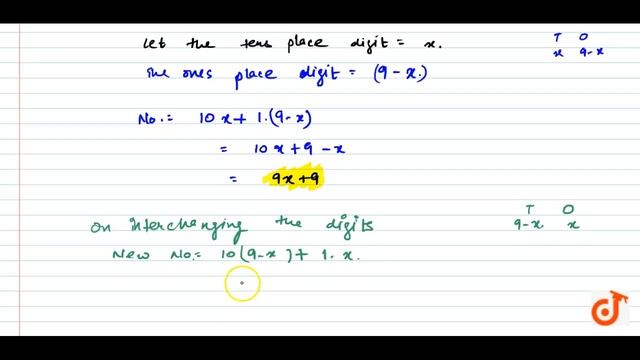 Let the tens place digit = x.
T O
x 9-x
The ones place digit = (9-x.)
No.: 10x + 1.(9-x)
= 10x + 9 - x
= 9x+9
On interchanging the digits
T O
9-x x
New No.: 10(9-x) + 1. x.